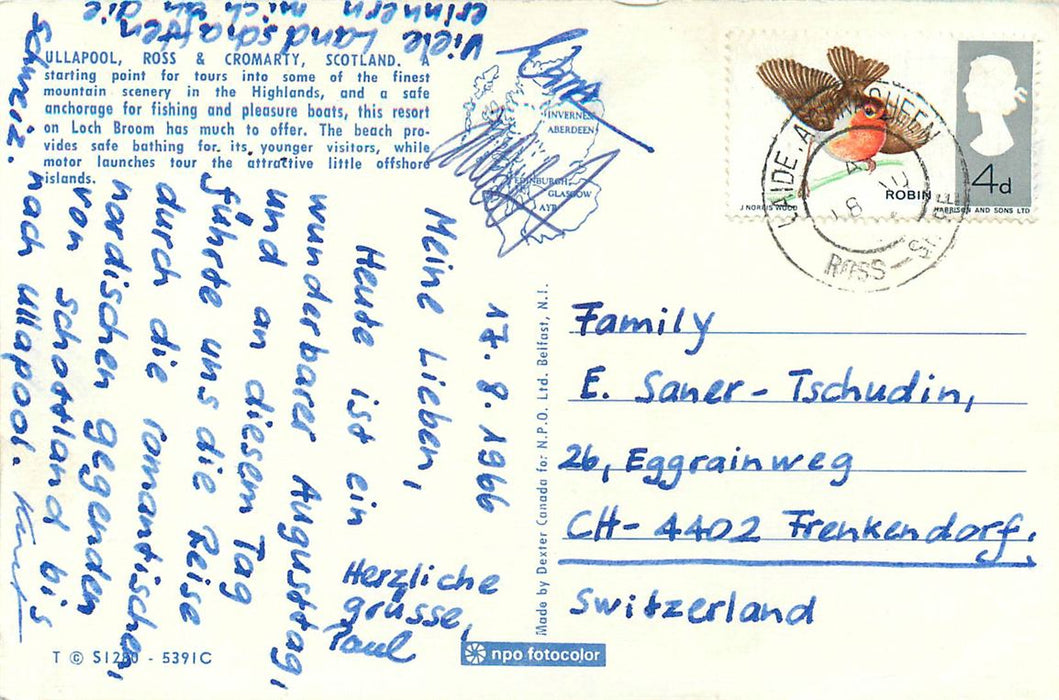 ULLAPOOL, ROSS & CROMARTY, SCOTLAND. A
starting point for tours into some of the finest
mountain scenery in the Highlands, and a safe
anchorage for fishing and pleasure boats, this resort
on Loch Broom has much to offer. The beach pro-
vides safe bathing for its younger visitors, while
motor launches tour the attractive little offshore
islands.
INVERNESS
ABERDEEN
EDINBURGH
GLASGOW
AYR
17. 8. 1966
Meine Lieben,
Heute ist ein
wunderbarer Augusttag,
und an diesem Tag
führte uns die Reise
durch die romantischen,
nordischen gegenden
von Schottland bis
nach Ullapool.
Viele Landschaften
erinnern mich an die
Schweiz.
Kurt
Herzliche
grüsse,
Paul
T © S1280 - 5391C
Made by Dexter Canada for N.P.O. Ltd. Belfast, N.I.
npo fotocolor
4d
ROBIN
J NORRIS WOOD
HARRISON AND SONS LTD
LAIDE ACHNASHEEN
ROSS-SHIRE
Family
E. Saner-Tschudin,
26, Eggrainweg
CH-4402 Frenkendorf.
Switzerland